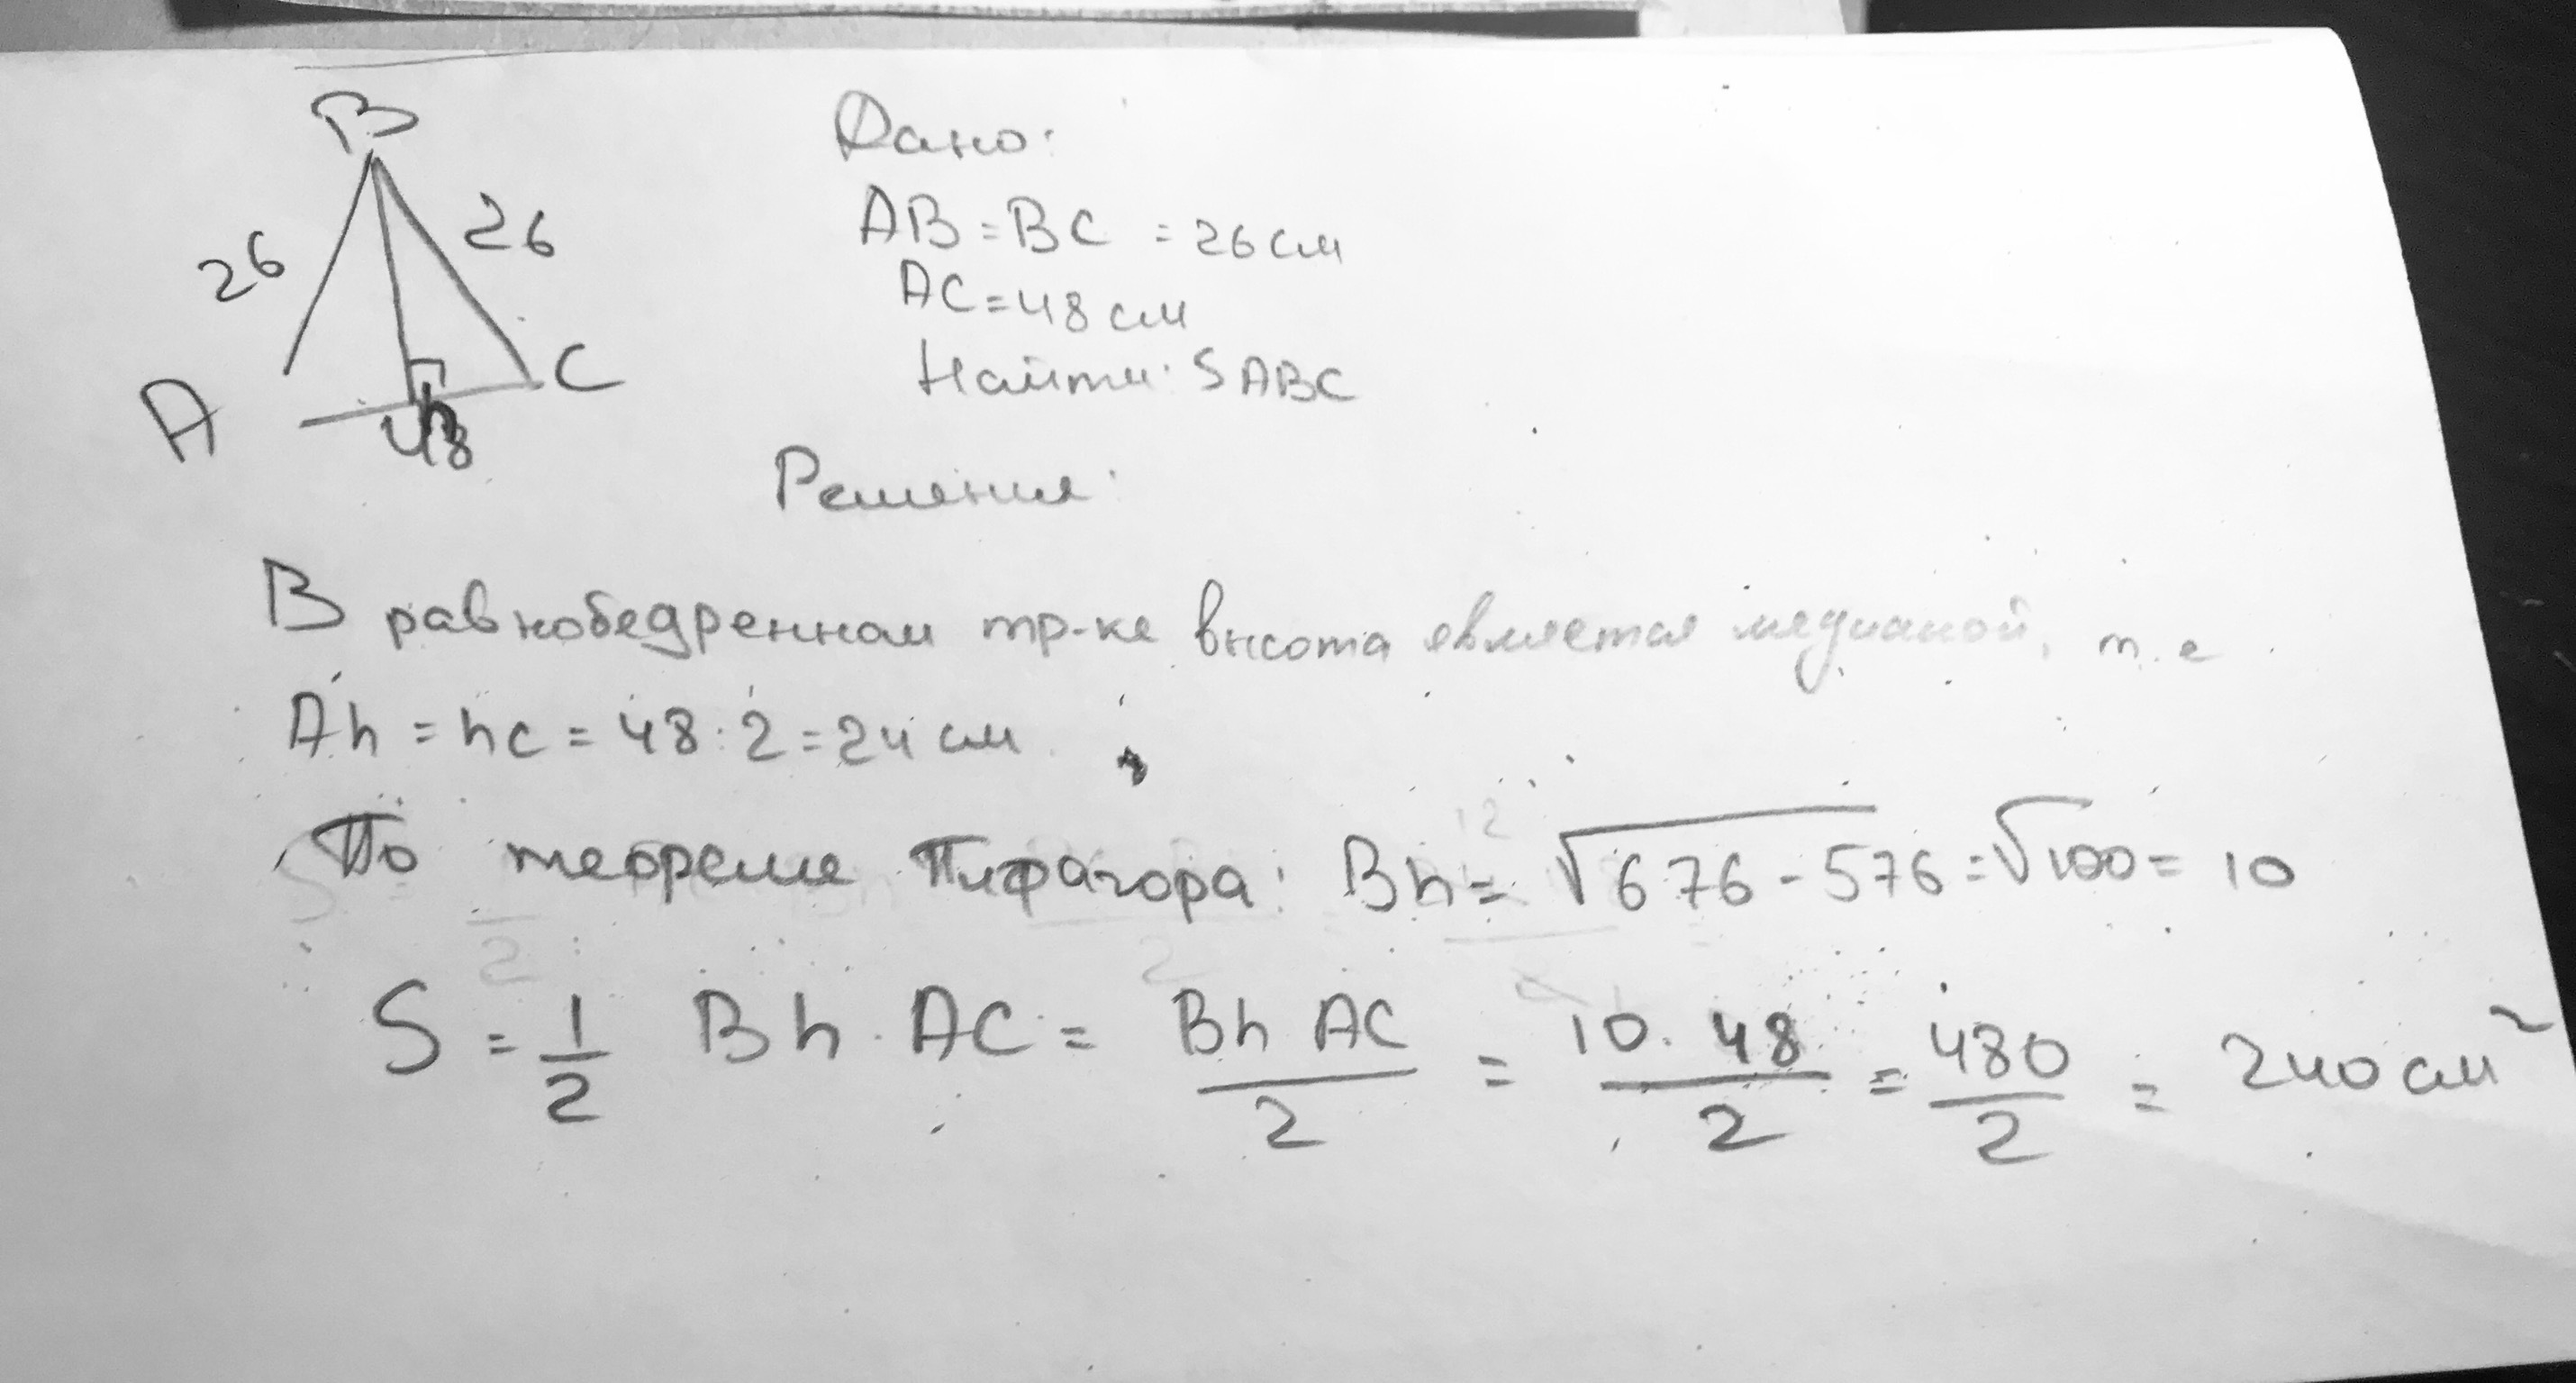 B
26
26
A
C
h
48
Дано:
AB = BC = 26 см
AC = 48 см
Найти: S ABC
Решение:
В равнобедренном тр-ке высота является медианой, т.е
Ah = hc = 48 : 2 = 24 см
По теореме Пифагора: Bh = √676 - 576 = √100 = 10
S = 1/2 Bh · AC = Bh AC/2 = 10 · 48/2 = 480/2 = 240 см²